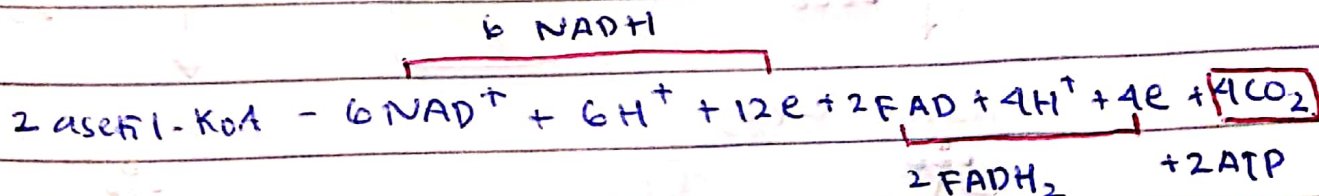 6 NADH
2 asetil-KoA - 6NAD⁺ + 6H⁺ + 12e + 2FAD + 4H⁺ + 4e + 4CO₂
2 FADH₂ +2ATP